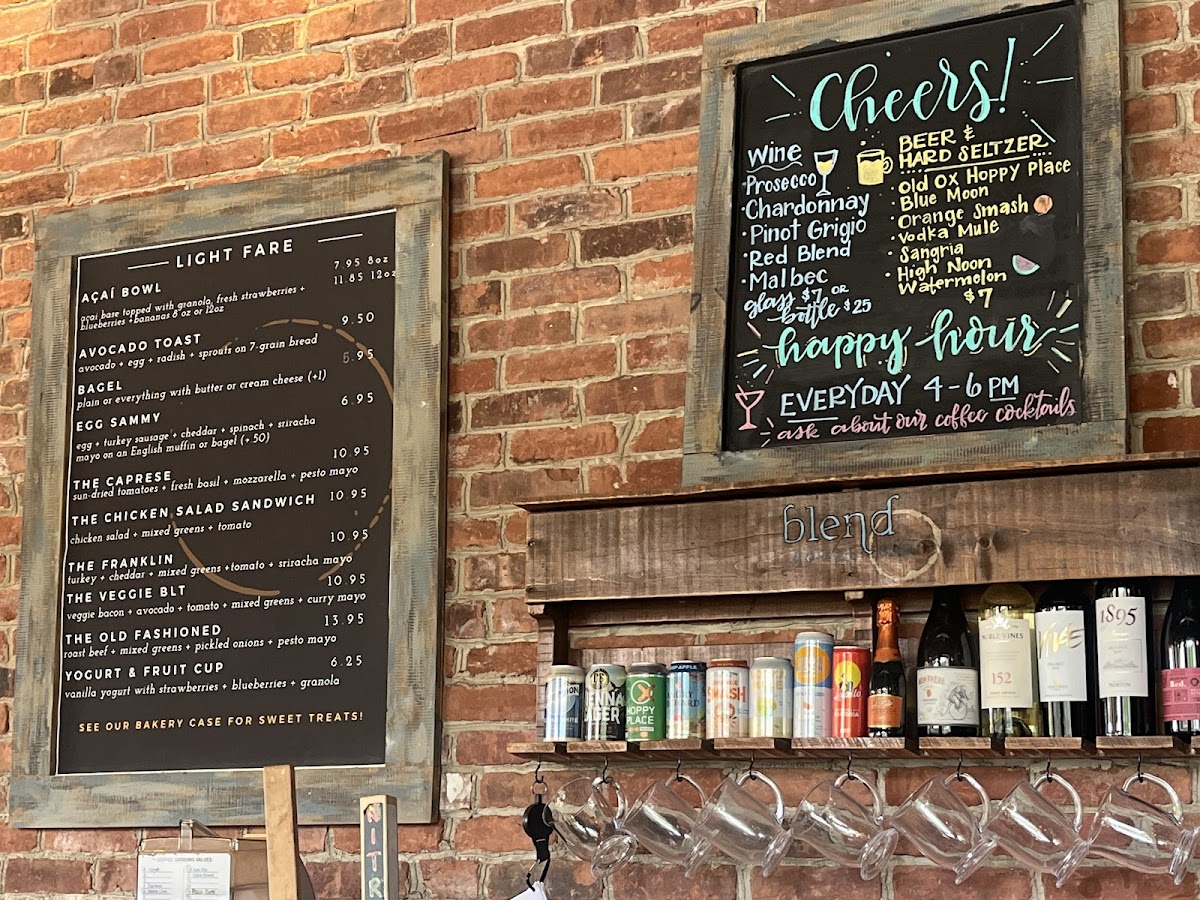 LIGHT FARE
AÇAÍ BOWL
7.95 8oz
11.85 12oz
açai base topped with granola, fresh strawberries +
blueberries + bananas 8 oz or 12oz
AVOCADO TOAST 9.50
avocado + egg + radish + sprouts on 7-grain bread
BAGEL 5.95
plain or everything with butter or cream cheese (+1)
EGG SAMMY 6.95
egg + turkey sausage + cheddar + spinach + sriracha
mayo on an English muffin or bagel (+.50)
THE CAPRESE 10.95
sun-dried tomatoes + fresh basil + mozzarella + pesto mayo
THE CHICKEN SALAD SANDWICH 10.95
chicken salad + mixed greens + tomato
THE FRANKLIN 10.95
turkey + cheddar + mixed greens +tomato + sriracha mayo
THE VEGGIE BLT 10.95
veggie bacon + avocado + tomato + mixed greens + curry mayo
THE OLD FASHIONED 13.95
roast beef + mixed greens + pickled onions + pesto mayo
YOGURT & FRUIT CUP 6.25
vanilla yogurt with strawberries + blueberries + granola
SEE OUR BAKERY CASE FOR SWEET TREATS!
Cheers!
Wine
·Prosecco
·Chardonnay
·Pinot Grigio
·Red Blend
·Malbec
glass $7 or
bottle $25
BEER &
HARD SELTZER
·Old Ox Hoppy Place
·Blue Moon
·Orange Smash
·Vodka Mule
·Sangria
·High Noon
Watermelon
$7
happy hour
EVERYDAY 4-6 PM
ask about our coffee cocktails
blend
HOPPY
PLACE
SMASH
NOBLE VINES
152
1895
NORTON
Red.
NITR